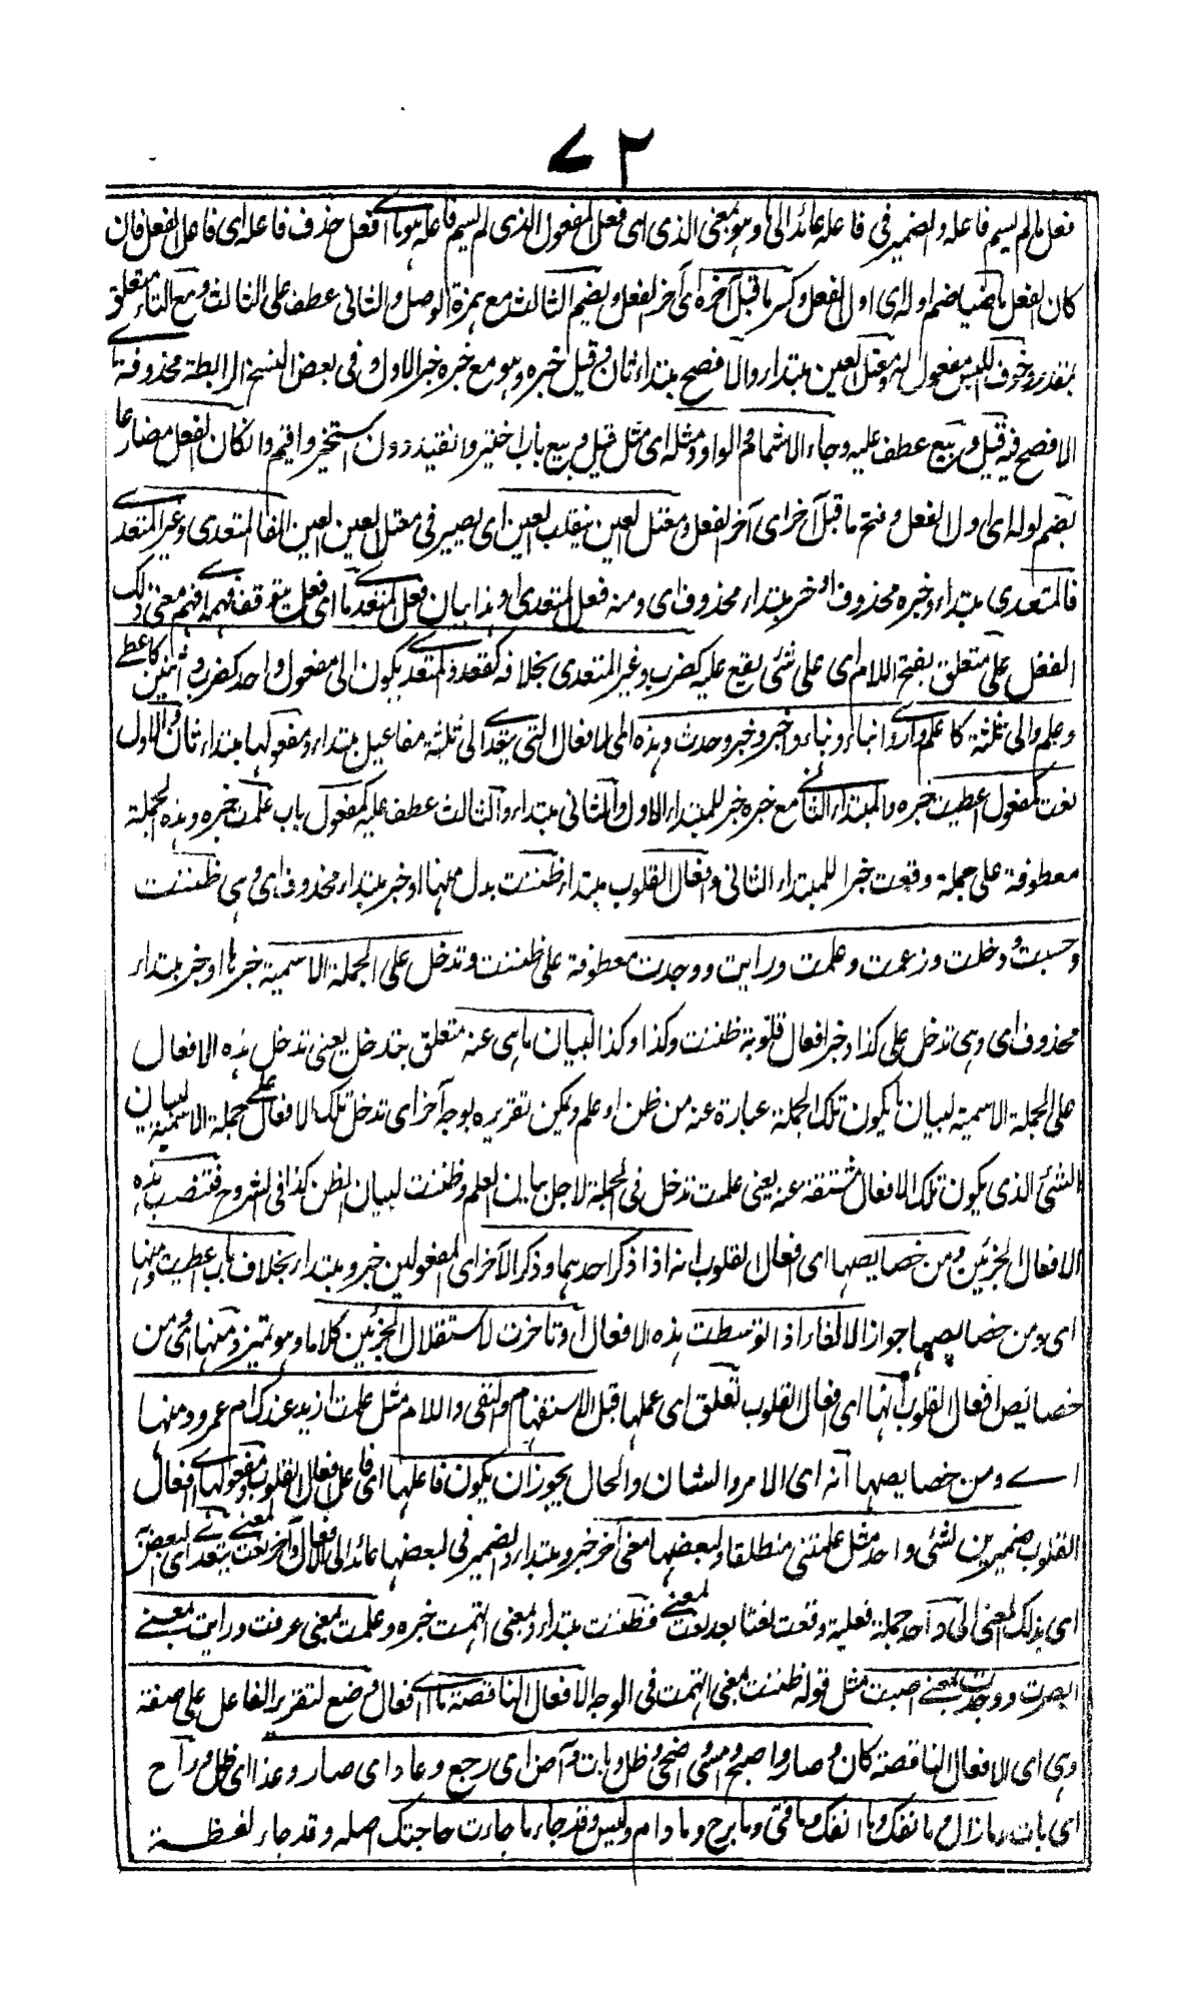 ٧٢
فعل ما لم يسم فاعله والضمير فى فاعله عائد الى ما وهو بمعنى الذى اى فعل المفعول الذى لم يسم فاعله هو ما اى فعل حذف فاعله اى فاعل الفعل فان
كان الفعل ماضيا ضم اوله اى اول الفعل وكسر ما قبل آخره اى آخر الفعل ويضم الثالث مع همزة الوصل والثانى عطف على الثالث ومع التاء متعلق
بمقدر وخوف اللبس مفعول له ومعتل العين مبتداء والافصح مبتداء ثان وقيل خبره وهو مع خبره خبر الاول وفى بعض النسخ الرابطة محذوفة اى
الافصح فيه قيل وبيع عطف عليه وجاء الاشمام والواو ومثله اى مثل قيل وبيع باب اختير وانقيد دون استخير واقيم وان كان الفعل مضارعا
بضم اوله اى اول الفعل وفتح ما قبل آخره اى آخر الفعل ومعتل العين ينقلب العين اى يصير فى معتل العين العين الفا المتعدى وغير المتعدى
فالمتعدى مبتداء وخبره محذوف او خبر مبتداء محذوف اى ومنه فعل المتعدى وهذا بيان فعل المتعدى ما اى فعل يتوقف فهمه اى فهم معنى ذلك
الفعل على متعلق بفتح اللام اى على شئ يقع عليه كضرب وغير المتعدى بخلافه كقعد والمتعدى يكون الى مفعول واحد كضرب واثنين كاعطى
وعلم والى ثلثة كاعلم وارى وانباء ونباء واخبر وخبر وحدث وهذه اى الافعال التى يتعدى الى ثلثة مفاعيل مبتداء ومفعولها مبتداء ثان والاول
نعت كمفعول اعطيت خبره والمبتداء الثانى مع خبره خبر للمبتداء الاول والثانى مبتداء والثالث عطف عليه كمفعول باب علمت خبره وهذه الجملة
معطوفة على جملة وقعت خبرا للمبتداء الثانى وافعال القلوب مبتداء ظننت بدل منها او خبر مبتداء محذوف اى وهى ظننت
وحسبت وخلت وزعمت وعلمت ورايت ووجدت معطوفة على ظننت وتدخل على الجملة الاسمية خبرها او خبر مبتداء
محذوف اى وهى تدخل على كذا وخبر افعال قلوبة ظننت وكذا وكذا لبيان ما هى عنه متعلق بتدخل يعنى تدخل هذه الافعال
على الجملة الاسمية لبيان ما يكون تلك الجملة عبارة عنه من ظن او علم ويمكن تقريره بوجه آخر اى تدخل تلك الافعال على جملة الاسمية لبيان
الشئ الذى يكون تلك الافعال مشتقة عنه يعنى علمت تدخل فى الجملة لاجل بيان العلم وظننت لبيان الظن كذا فى الشروح فتنصب هذه
الافعال الجزئين ومن خصايصها اى افعال القلوب انه اذا ذكر احدهما وذكر الآخر اى المفعولين خبر ومبتداء بخلاف باب اعطيت ومنها
اى ومن خصايصها جواز الالغاء اذا توسطت هذه الافعال او تاخرت لاستقلال الجزئين كلاما وهو تميز ومنها اى من
خصائيص افعال القلوب انها اى افعال القلوب تعلق اى عملها قبل الاستفهام والنفى واللام مثل علمت ازيد عندك ام عمرو ومنها
اى ومن خصايصها انه اى الامر والشان والحال يجوز ان يكون فاعلها اى فاعل افعال القلوب ومفعولها اى افعال
القلوب ضميرين لشئ واحد مثل علمتنى منطلقا ولبعضها معنى آخر خبر ومبتداء والضمير فى لبعضها عائد الى الافعال وآخر نعت لمعنى يتعدى اى البعض به
اى بذلك المعنى الى واحد جملة فعلية وقعت نعتا بعد نعت لمعنى فظننت مبتداء وبمعنى اتهمت خبره وعلمت بمعنى عرفت ورايت بمعنى
ابصرت ووجدت بمعنى اصبت مثل قوله ظننت بمعنى اتهمت فى الوجه الافعال الناقصة ما اى افعال وضع لتقرير الفاعل على صفة
وهى اى الافعال الناقصة كان وصار واصبح وامسى واضحى وظل وبات وآض اى رجع وعاد اى صار وغدا اى ظل وراح
اى بات وما زال وما نفك وما انفك وما فتى وما برح وما دام وليس وقد جاء ما جاءت حاجتك اصله وقد جاء لفظة